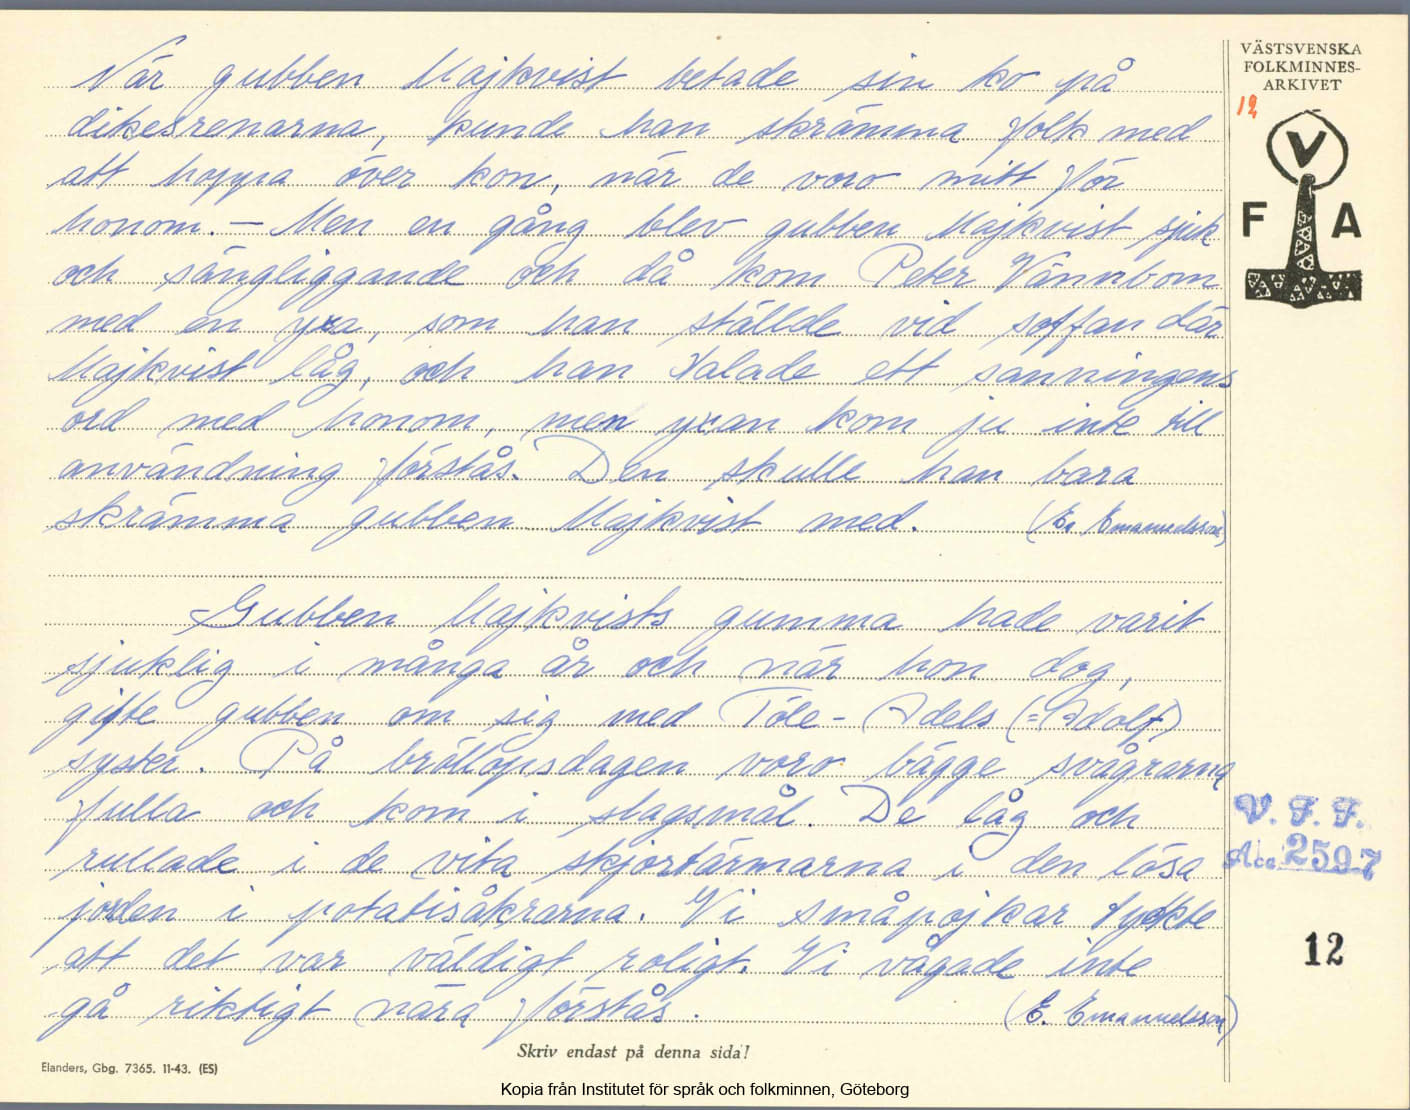 VÄSTSVENSKA
FOLKMINNES-
ARKIVET
12
V
F A
När gubben Majkvist betade sin ko på
dikesrenarna, kunde han skrämma folk med
att hoppa över kon, när de voro mitt för
honom. – Men en gång blev gubben Majkvist sjuk
och sängliggande och då kom Peter Vännbom
med en yxa, som han ställde vid soffan där
Majkvist låg, och han talade ett sanningens
ord med honom, men yxan kom ju inte till
användning förstås. Den skulle han bara
skrämma gubben Majkvist med. (E. Emanuelsson)
Gubben Majkvists gumma hade varit
sjuklig i många år och när hon dog,
gifte gubben om sig med Töle-Adels (=Adolf)
syster. På bröllopsdagen voro bägge svågrarna
fulla och kom i slagsmål. De låg och
rullade i de vita skjortärmarna i den lösa
jorden i potatisåkrarna. Vi småpojkar tyckte
att det var väldigt roligt. Vi vågade inte
gå riktigt nära förstås. (E. Emanuelsson)
V. F. F.
Acc 2597
12
Skriv endast på denna sida!
Elanders, Gbg. 7365. 11-43. (ES)
Kopia från Institutet för språk och folkminnen, Göteborg